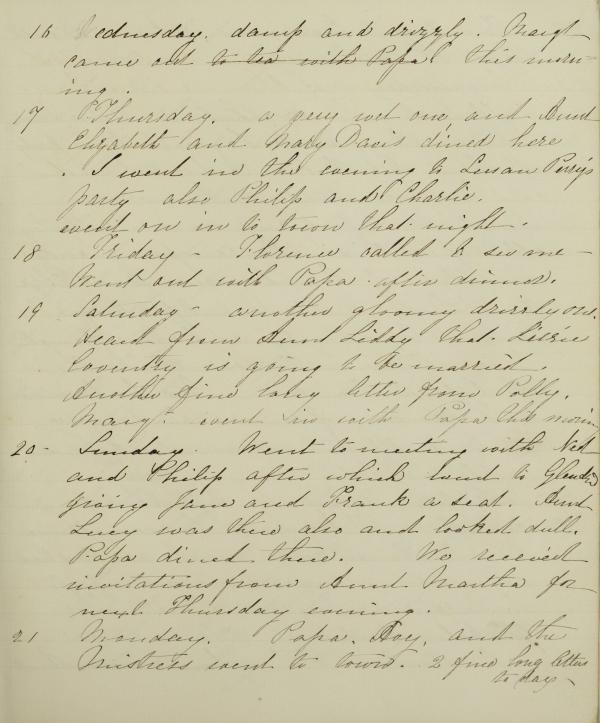 16 Wednesday. damp and drizzly. Margt
came out to tea with Papa this morn-
ing.
17 Thursday. a very wet one, and Aunt
Elizabeth and Mary Davis dined here
. I went in the evening to Susan Perry's
party also Philip and Charlie.
went on in to town that night.
18 Friday - Florence called to see me -
Went out with Papa after dinner.
19 Saturday - another gloomy drizzly one.
Heard from Aunt Liddy that Lizzie
Coventry is going to be married.
Another fine long letter from Polly.
Margt. went in with Papa this morning
20 - Sunday. Went to meeting with Ned
and Philip after which went to
giving Jane and Frank a seat. Aunt
Lucy was there also and looked dull.
Papa dined there. We received
invitations from Aunt Martha for
next Thursday evening.
21 Monday. Papa, and the
Mistress went to town. 2 fine long letters
to day -